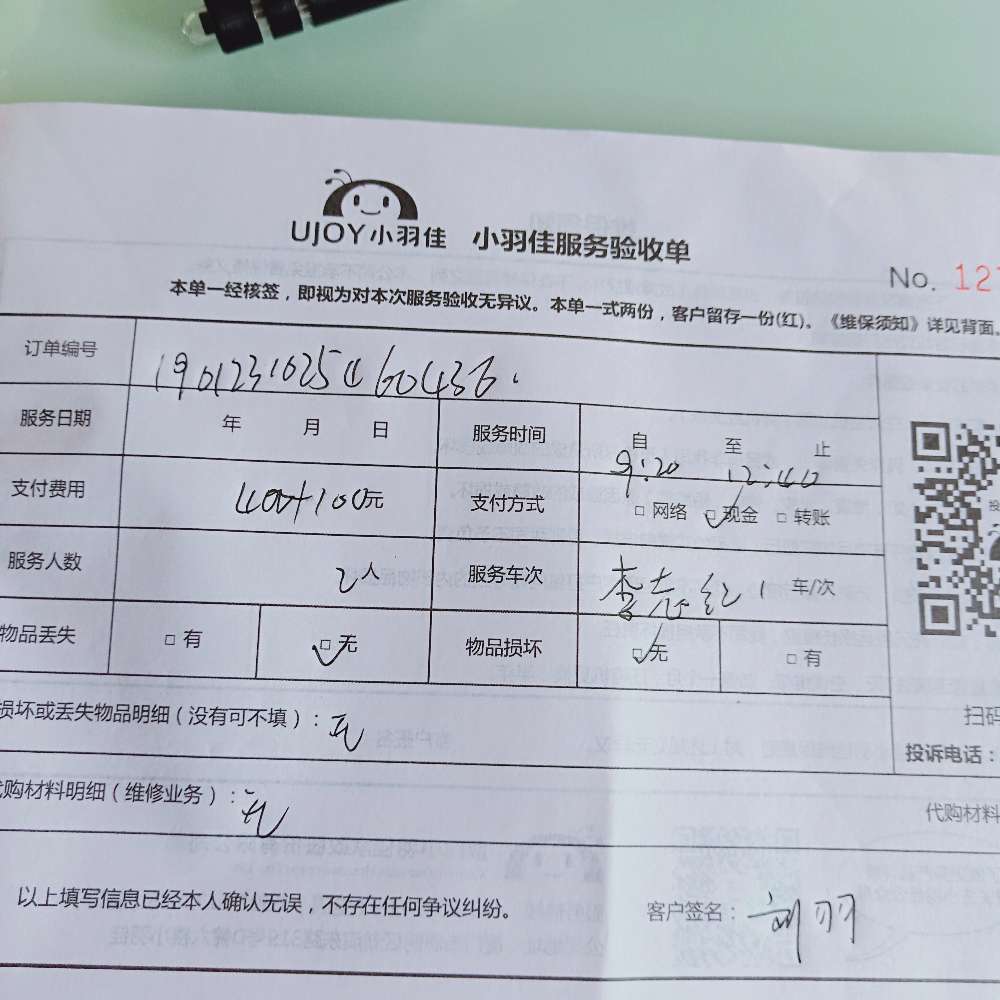 UJOY小羽佳 小羽佳服务验收单
No. 12
本单一经核签，即视为对本次服务验收无异议。本单一式两份，客户留存一份(红)。《维保须知》详见背面。
订单编号
服务日期 年 月 日 服务时间 自 至 止
9:20 12:40
支付费用 400+100元 支付方式 □ 网络 □ 现金 □ 转账
服务人数 2人 服务车次 李志红 1 车/次
物品丢失 □ 有 □ 无 物品损坏 □ 无 □ 有
损坏或丢失物品明细（没有可不填）：无
扫码
投诉电话：
代购材料明细（维修业务）：无
代购材料
以上填写信息已经本人确认无误，不存在任何争议纠纷。 客户签名：